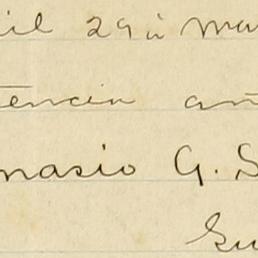 il 29 a ma
tencia an
nasio G. S
Su